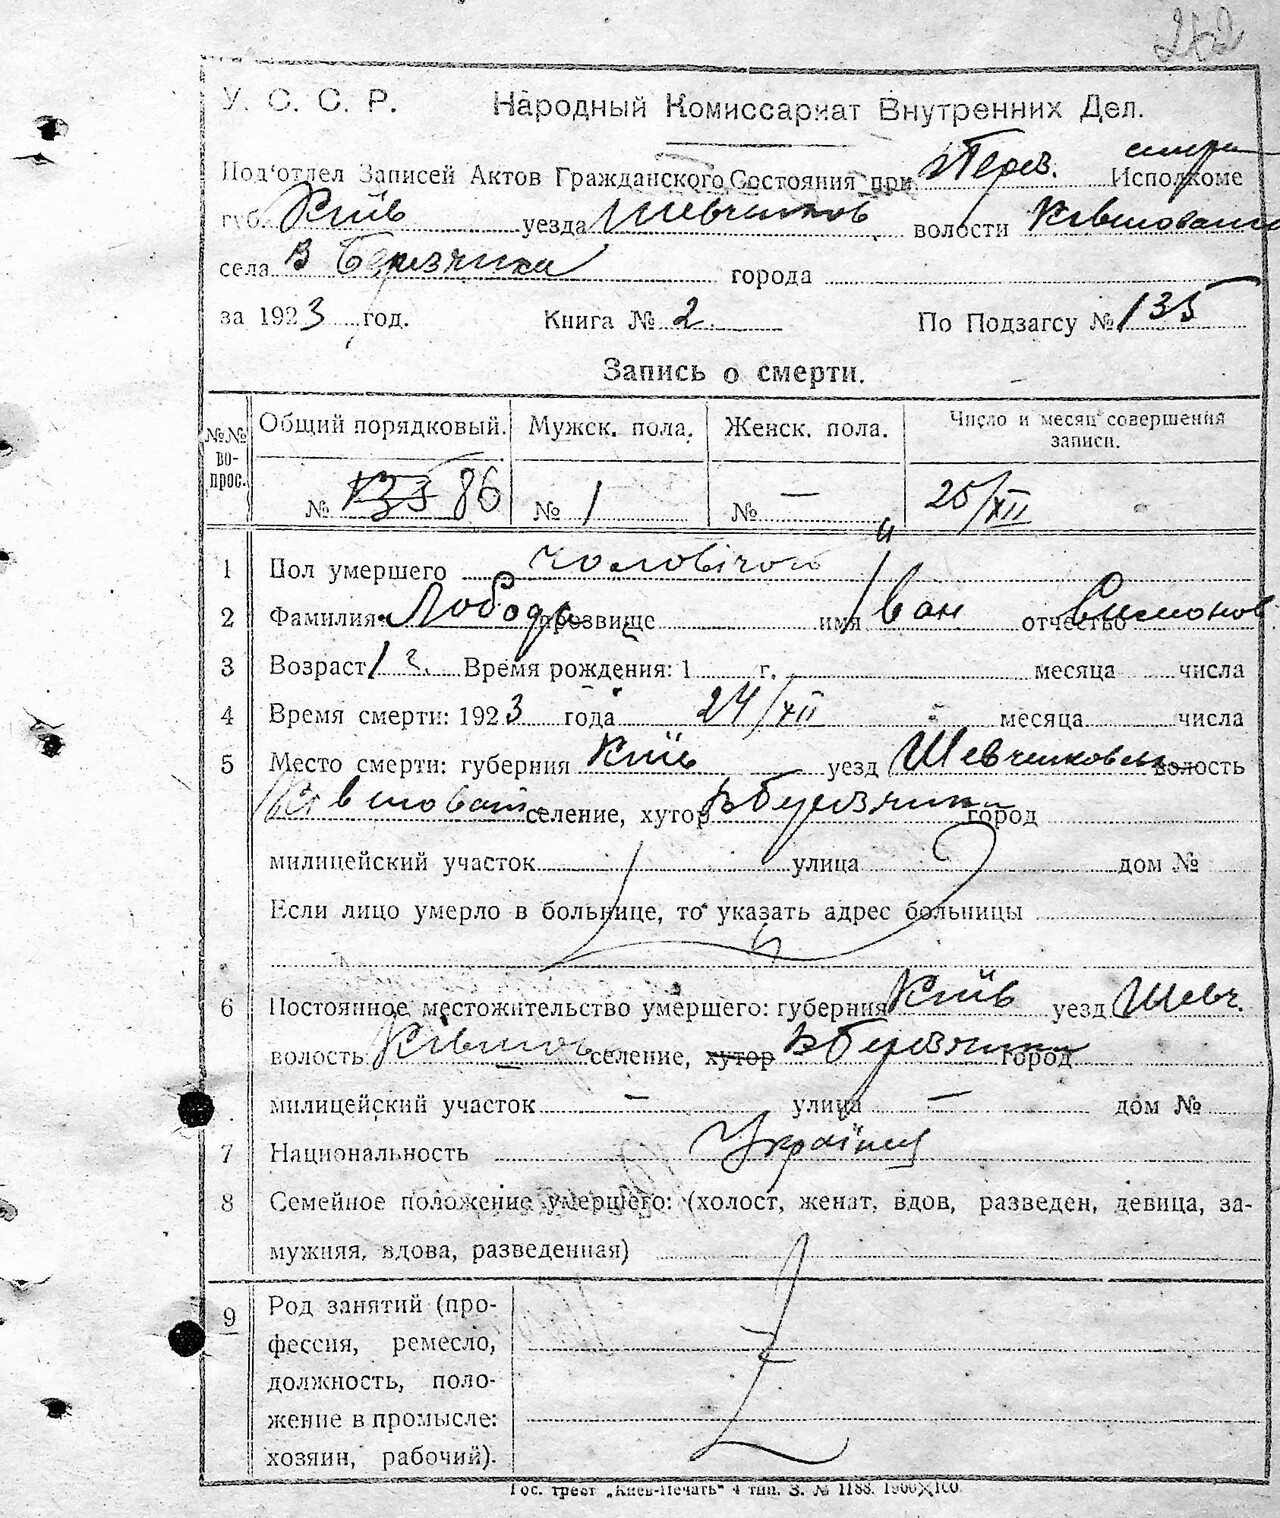 262
У. С. С. Р. Народный Комиссариат Внутренних Дел.
Под'отдел Записей Актов Гражданского Состояния при Исполкоме
губ. Київ уезда Шевченков волости
села В Березянка города
за 1923 год. Книга № 2 По Подзагсу № 135
Запись о смерти.
№№ вопрос. Общий порядковый. Мужск. пола. Женск. пола. Число и месяц совершения записи.
№ 135 86 № 1 № — 25/XII
1 Пол умершего чоловічої
2 Фамилия Лобода прозвище имя Іван отчество Симонов
3 Возраст 1 г. Время рождения: 1 г. месяца числа
4 Время смерти: 1923 года 24/XII месяца числа
5 Место смерти: губерния Київ уезд Шевченковськ волость
селение, хутор город
милицейский участок улица дом №
Если лицо умерло в больнице, то указать адрес больницы
6 Постоянное местожительство умершего: губерния Київ уезд Шевч.
волость селение, хутор город
милицейский участок — улица — дом №
7 Национальность Українец
8 Семейное положение умершего: (холост, женат, вдов, разведен, девица, за-
мужняя, вдова, разведенная)
9 Род занятий (про-
фессия, ремесло,
должность, поло-
жение в промысле:
хозяин, рабочий).
Гос. трест „Киев-Печать" 4 тип. З. № 1188. 1900×100.